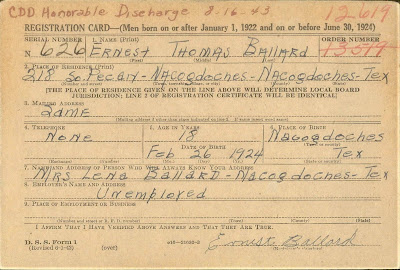 CDD Honorable Discharge 8-16-43 12619
REGISTRATION CARD—(Men born on or after January 1, 1922 and on or before June 30, 1924)
SERIAL NUMBER 1. NAME (Print) ORDER NUMBER
626 ERNEST THOMAS BALLARD
(First) (Middle) (Last)
2. PLACE OF RESIDENCE (Print)
218 So. Pecan - Nacogdoches - Nacogdoches - Tex
(Number and street) (Town, township, village, or city) (County) (State)
[THE PLACE OF RESIDENCE GIVEN ON THE LINE ABOVE WILL DETERMINE LOCAL BOARD
JURISDICTION; LINE 2 OF REGISTRATION CERTIFICATE WILL BE IDENTICAL]
3. MAILING ADDRESS
Same
4. TELEPHONE 5. AGE IN YEARS 6. PLACE OF BIRTH
None 18 Nacogdoches
DATE OF BIRTH (Town or county)
Feb 26 1924 Tex
(Exchange) (Number) (Mo.) (Day) (Yr.) (State or country)
7. NAME AND ADDRESS OF PERSON WHO WILL ALWAYS KNOW YOUR ADDRESS
Mrs Lena BALLARD - Nacogdoches - Tex
8. EMPLOYER'S NAME AND ADDRESS
Unemployed
9. PLACE OF EMPLOYMENT OR BUSINESS
(Number and street or R. F. D. number) (Town) (County) (State)
I AFFIRM THAT I HAVE VERIFIED ABOVE ANSWERS AND THAT THEY ARE TRUE.
D. S. S. Form 1
(Revised 6-9-41) (over) Ernest Ballard